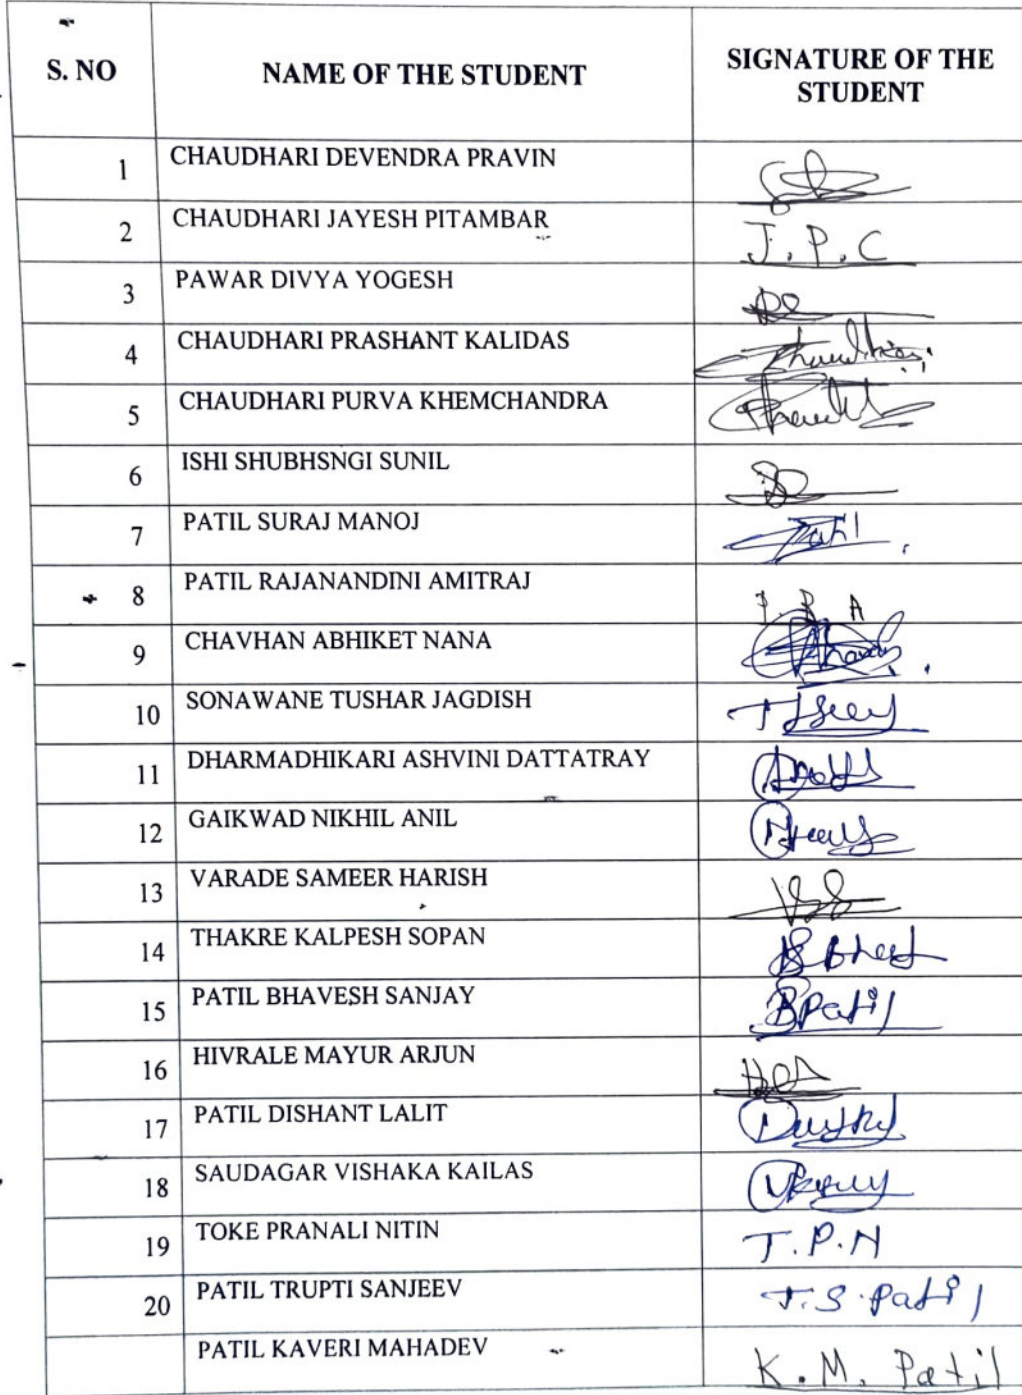 S. NO NAME OF THE STUDENT SIGNATURE OF THE STUDENT
1 CHAUDHARI DEVENDRA PRAVIN
2 CHAUDHARI JAYESH PITAMBAR J.P.C
3 PAWAR DIVYA YOGESH
4 CHAUDHARI PRASHANT KALIDAS
5 CHAUDHARI PURVA KHEMCHANDRA
6 ISHI SHUBHSNGI SUNIL
7 PATIL SURAJ MANOJ
8 PATIL RAJANANDINI AMITRAJ P.R A
9 CHAVHAN ABHIKET NANA
10 SONAWANE TUSHAR JAGDISH
11 DHARMADHIKARI ASHVINI DATTATRAY
12 GAIKWAD NIKHIL ANIL
13 VARADE SAMEER HARISH
14 THAKRE KALPESH SOPAN
15 PATIL BHAVESH SANJAY BPatil
16 HIVRALE MAYUR ARJUN
17 PATIL DISHANT LALIT
18 SAUDAGAR VISHAKA KAILAS
19 TOKE PRANALI NITIN T.P.N
20 PATIL TRUPTI SANJEEV T.S.Patil
PATIL KAVERI MAHADEV K.M. Patil